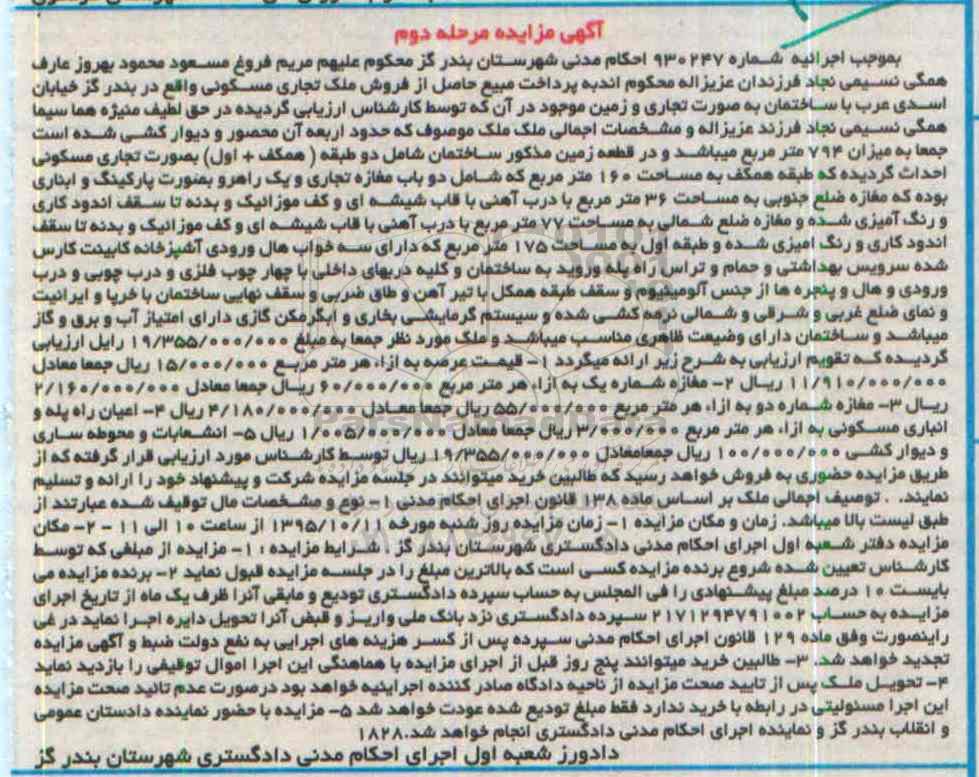 آگهی مزایده مرحله دوم
بموجب اجرائیه شماره ۹۳۰۲۴۷ احکام مدنی شهرستان بندر گز محکوم علیهم مریم فروغ مسعود محمود بهروز عارف
همگی نسیمی نجاد فرزندان عزیزاله محکوم اندبه پرداخت مبیع حاصل از فروش ملک تجاری مسکونی واقع در بندر گز خیابان
اسدی عرب با ساختمان به صورت تجاری و زمین موجود در آن که توسط کارشناس ارزیابی گردیده در حق لطیف منیژه هما سیما
همگی نسیمی نجاد فرزند عزیزاله و مشخصات اجمالی ملک ملک موصوف که حدود اربعه آن محصور و دیوار کشی شده است
جمعا به میزان ۷۹۴ متر مربع میباشد و در قطعه زمین مذکور ساختمان شامل دو طبقه ( همکف + اول) بصورت تجاری مسکونی
احداث گردیده که طبقه همکف به مساحت ۱۶۰ متر مربع که شامل دو باب مغازه تجاری و یک راهرو بصورت پارکینگ و ابناری
بوده که مغازه ضلع جنوبی به مساحت ۳۶ متر مربع با درب آهنی با قاب شیشه ای و کف موزائیک و بدنه تا سقف اندود کاری
و رنگ آمیزی شده و مغازه ضلع شمالی به مساحت ۷۷ متر مربع با درب آهنی با قاب شیشه ای و کف موزائیک و بدنه تا سقف
اندود کاری و رنگ امیزی شده و طبقه اول به مساحت ۱۷۵ متر مربع که دارای سه خواب هال ورودی آشپزخانه کابینت کارس
شده سرویس بهداشتی و حمام و تراس راه پله وروید به ساختمان و کلیه دربهای داخلی با چهار چوب فلزی و درب چوبی و درب
ورودی و هال و پنجره ها از جنس آلومینیوم و سقف طبقه همکل با تیر آهن و طاق ضربی و سقف نهایی ساختمان با خرپا و ایرانیت
و نمای ضلع غربی و شرقی و شمالی نرمه کشی شده و سیستم گرمایشی بخاری و ابگرمکن گازی دارای امتیاز آب و برق و گاز
میباشد و ساختمان دارای وضیعت ظاهری مناسب میباشد و ملک مورد نظر جمعا به مبلغ ۱۹/۳۵۵/۰۰۰/۰۰۰ رایل ارزیابی
گردیده که تقویم ارزیابی به شرح زیر ارائه میگردد ۱- قیمت عرصه به ازاء هر متر مربع ۱۵/۰۰۰/۰۰۰ ریال جمعا معادل
۱۱/۹۱۰/۰۰۰/۰۰۰ ریال ۲- مغازه شماره یک به ازاء هر متر مربع ۶۰/۰۰۰/۰۰۰ ریال جمعا معادل ۲/۱۶۰/۰۰۰/۰۰۰
ریال ۳- مغازه شماره دو به ازاء هر متر مربع ۵۵/۰۰۰/۰۰۰ ریال جمعا معادل ۴/۱۸۰/۰۰۰/۰۰۰ ریال ۴- اعیان راه پله و
انباری مسکونی به ازاء هر متر مربع ۳/۰۰۰/۰۰۰ ریال جمعا معادل ۱/۰۰۵/۰۰۰/۰۰۰ ریال ۵- انشعابات و محوطه ساری
و دیوار کشی ۱۰۰/۰۰۰/۰۰۰ ریال جمعامعادل ۱۹/۳۵۵/۰۰۰/۰۰۰ ریال توسط کارشناس مورد ارزیابی قرار گرفته که از
طریق مزایده حضوری به فروش خواهد رسید که طالبین خرید میتوانند در جلسه مزایده شرکت و پیشنهاد خود را ارائه و تسلیم
نمایند. . توصیف اجمالی ملک بر اساس ماده ۱۳۸ قانون اجرای احکام مدنی ۱- نوع و مشخصات مال توقیف شده عبارتند از
طبق لیست بالا میباشد. زمان و مکان مزایده ۱- زمان مزایده روز شنبه مورخه ۱۳۹۵/۱۰/۱۱ از ساعت ۱۰ الی ۱۱ - ۲- مکان
مزایده دفتر شعبه اول اجرای احکام مدنی دادگستری شهرستان بندر گز . شرایط مزایده : ۱- مزایده از مبلغی که توسط
کارشناس تعیین شده شروع برنده مزایده کسی است که بالاترین مبلغ را در جلسه مزایده قبول نماید ۲- برنده مزایده می
بایست ۱۰ درصد مبلغ پیشنهادی را فی المجلس به حساب سپرده دادگستری تودیع و مابقی آنرا ظرف یک ماه از تاریخ اجرای
مزایده به حساب ۲۱۷۱۲۹۴۷۹۱۰۰۲ سپرده دادگستری نزد بانک ملی واریز و قبض آنرا تحویل دایره اجرا نماید در غی
راینصورت وفق ماده ۱۲۹ قانون اجرای احکام مدنی سپرده پس از کسر هزینه های اجرایی به نفع دولت ضبط و آگهی مزایده
تجدید خواهد شد. ۳- طالبین خرید میتوانند پنج روز قبل از اجرای مزایده با هماهنگی این اجرا اموال توقیفی را بازدید نماید
۴- تحویل ملک پس از تایید صحت مزایده از ناحیه دادگاه صادر کننده اجرائیه خواهد بود درصورت عدم تائید صحت مزایده
این اجرا مسئولیتی در رابطه با خرید ندارد فقط مبلغ تودیع شده عودت خواهد شد ۵- مزایده با حضور نماینده دادستان عمومی
و انقلاب بندر گز و نماینده اجرای احکام مدنی دادگستری انجام خواهد شد.۱۸۲۸
دادورز شعبه اول اجرای احکام مدنی دادگستری شهرستان بندر گز